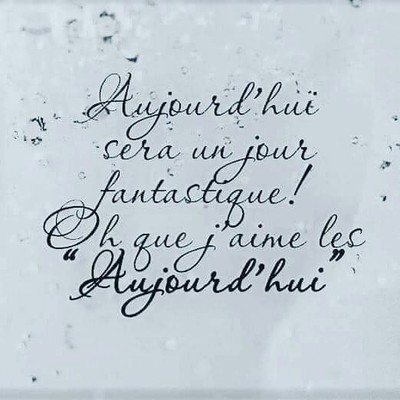 Aujourd'huï
sera un jour
fantastique!
Oh que j'aime les
"Aujourd'hui"